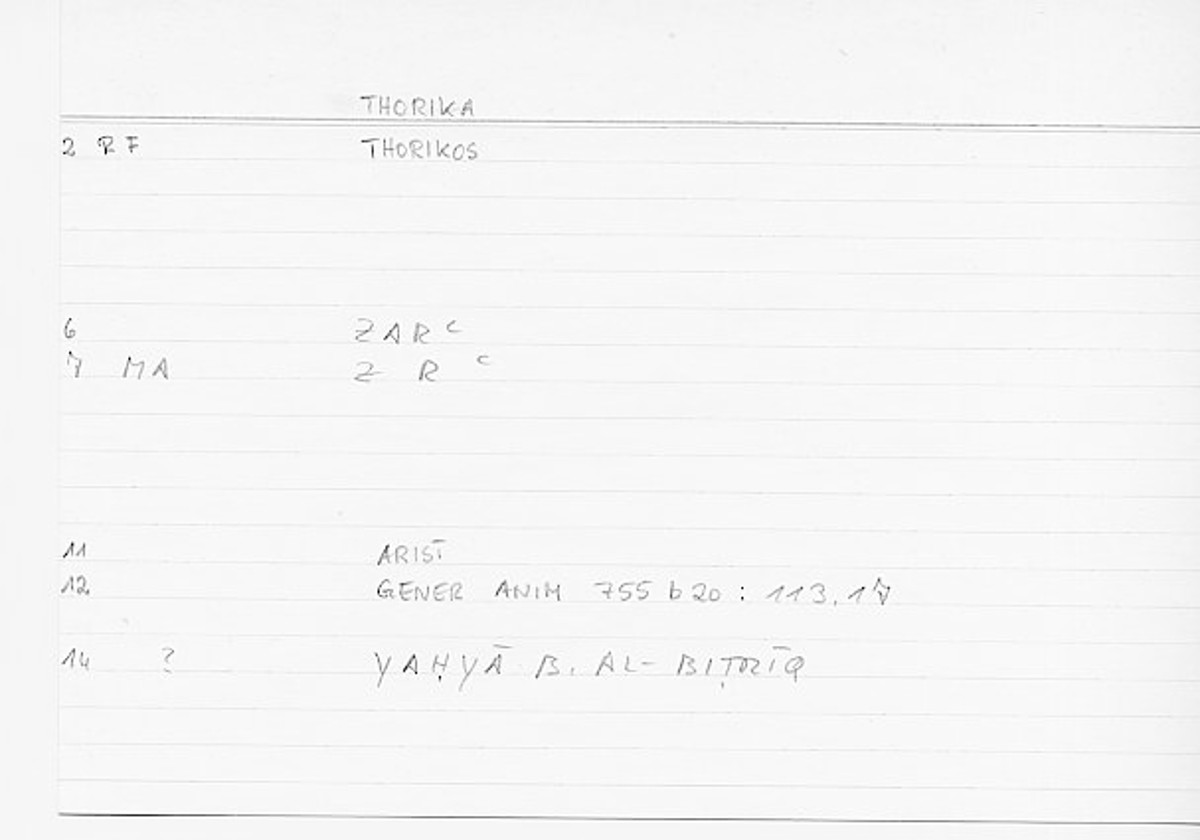 THORIKA
2 RF THORIKOS
6 ZAR ʿ
7 MA Z R ʿ
11 ARIST
12 GENER ANIM 755 b 20 : 113.17
14 ? YAḤYĀ B. AL-BIṬRĪQ